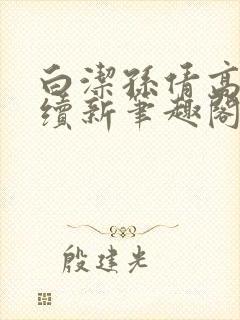 白潔孫倩高
續新筆趣閣
殷建光